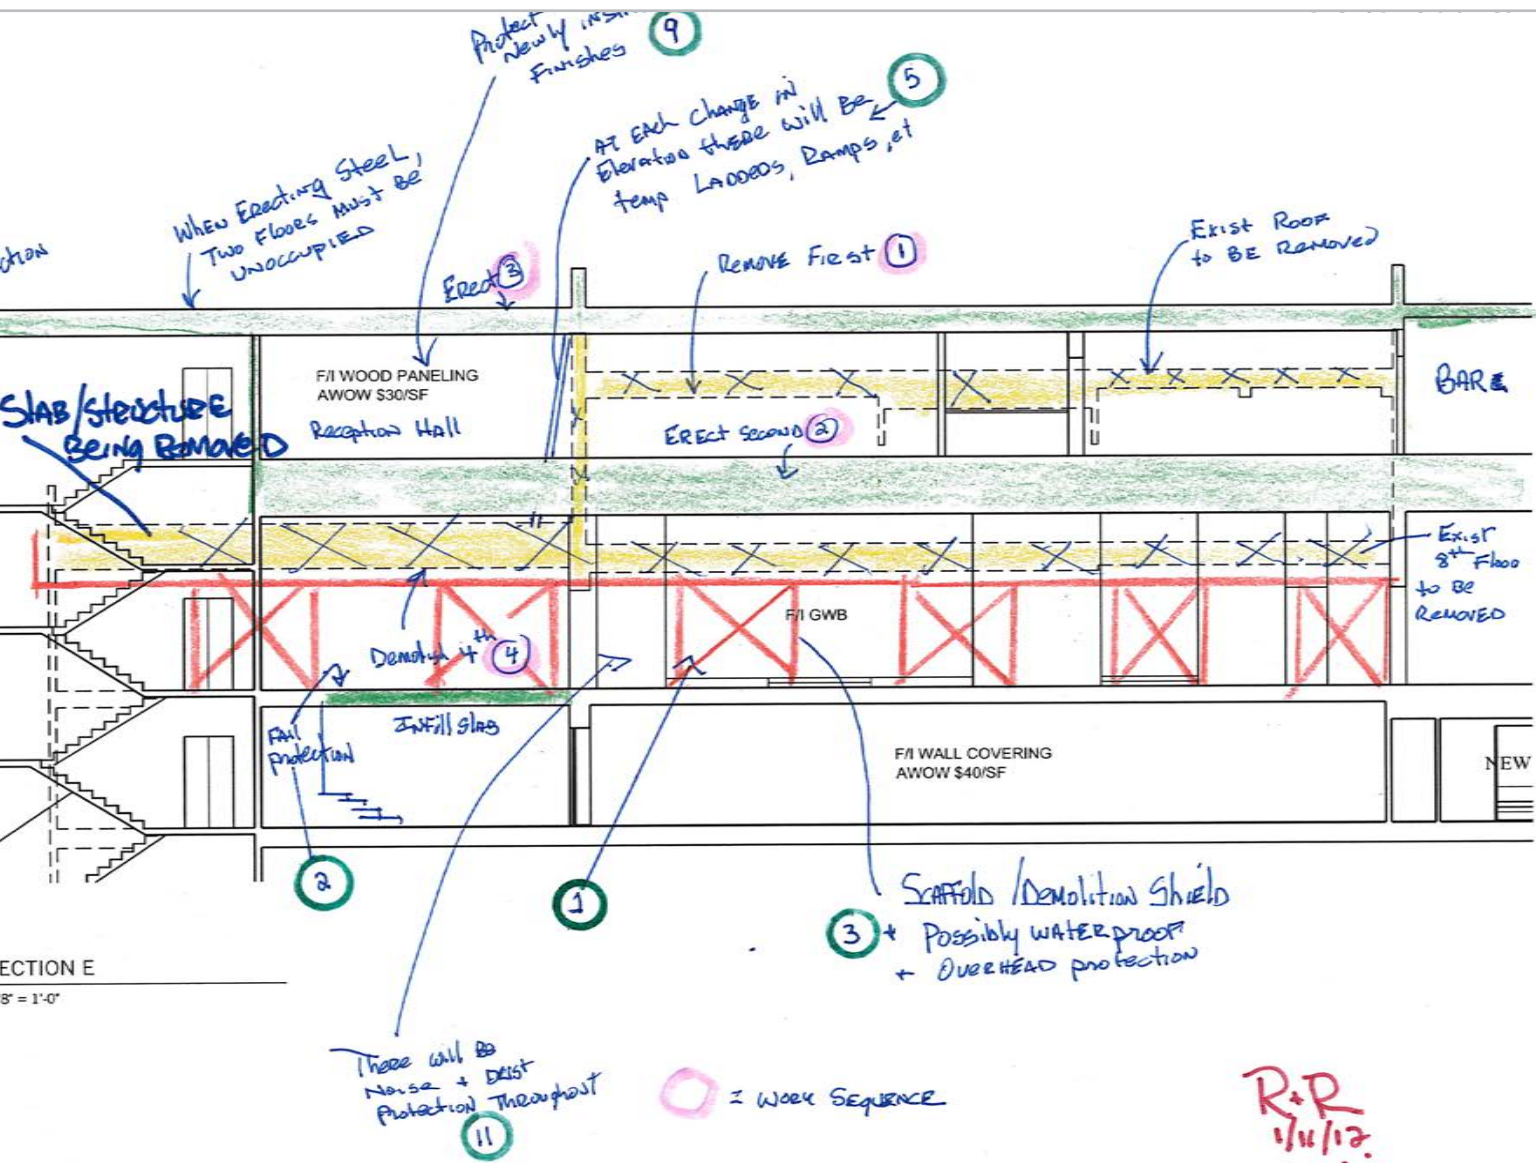 Protect
Newly
Finishes
9
5
At Each Change in
Elevation there will Be
temp Ladders, Ramps, et
When Erecting Steel,
Two Floors Must Be
UNOCCUPIED
Exist Roof
to BE Removed
Remove First 1
Erect 3
F/I WOOD PANELING
AWOW $30/SF
Reception Hall
BARE
Slab/Structure
Being Removed
Erect Second 2
Exist
8th Floor
to Be
Removed
F/I GWB
Demolish 4th 4
Fall
protection
Infill Slab
F/I WALL COVERING
AWOW $40/SF
NEW
2
1
Scaffold / Demolition Shield
3 + Possibly Waterproof
+ Overhead protection
ECTION E
8" = 1'-0"
There will Be
Noise + Dust
Protection Throughout
11
= Work Sequence
R+R
1/11/12